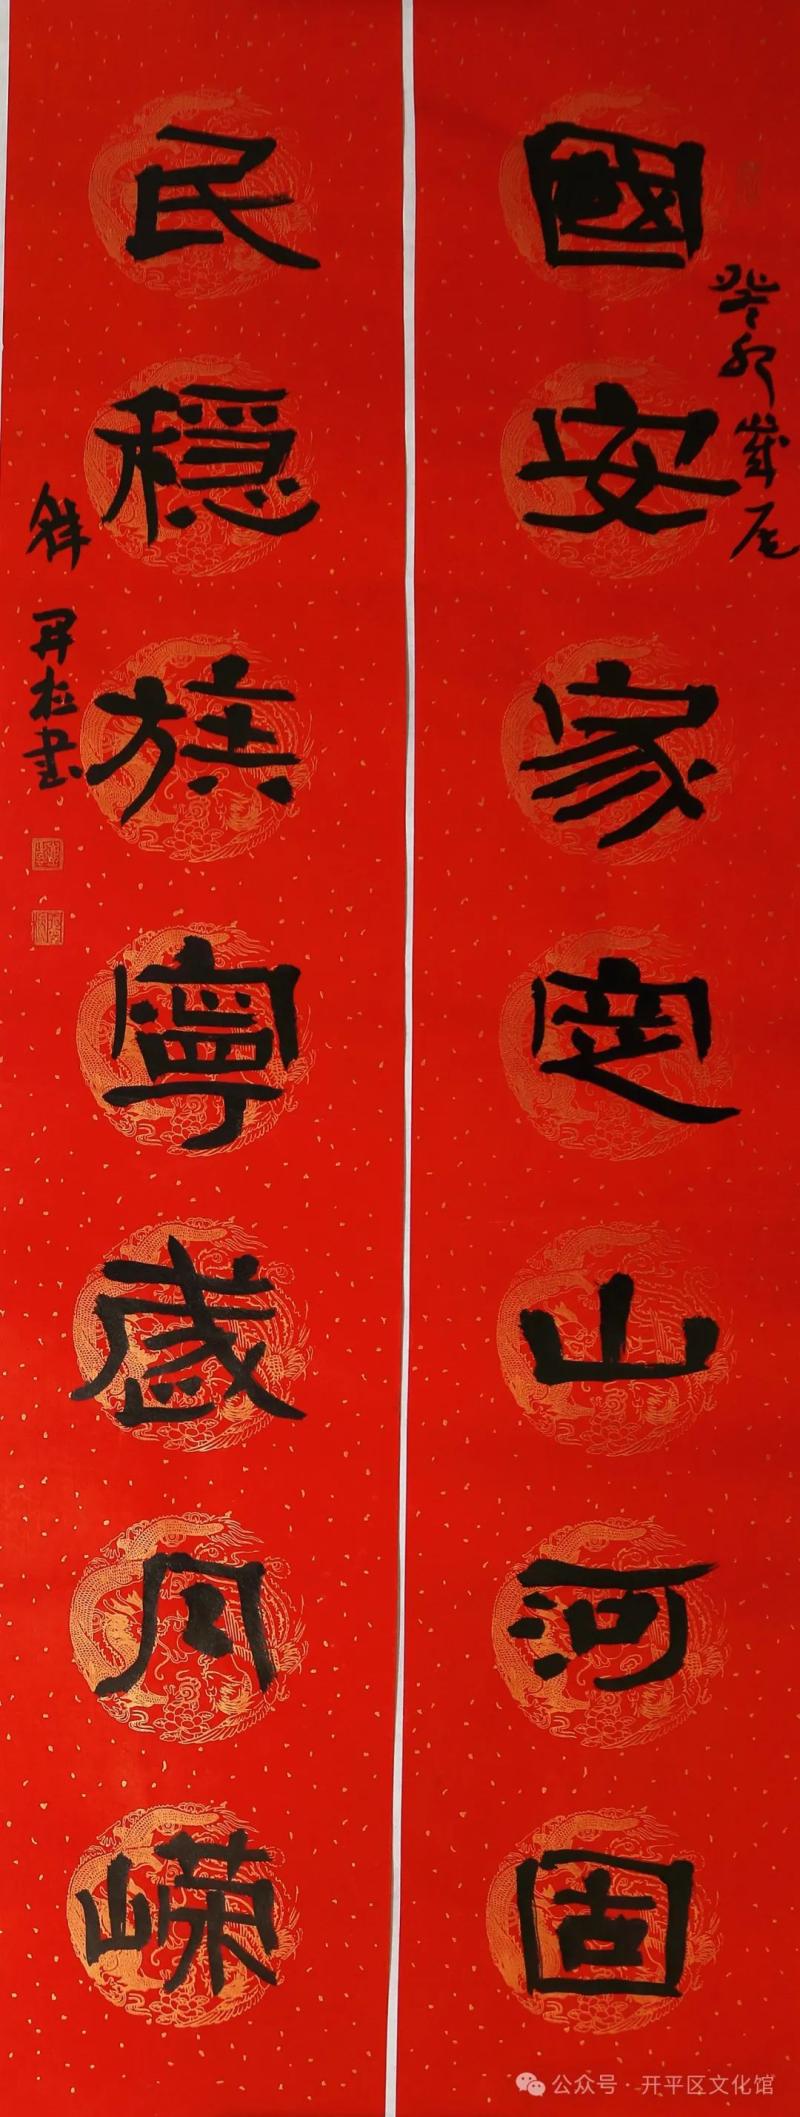 癸卯歲尾
國安家定山河固
民穩族寧歲月嶸
書
公众号·开平区文化馆